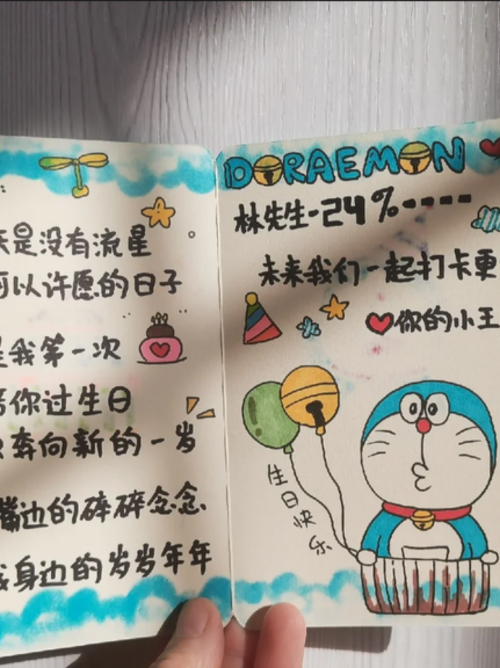 是没有流星
可以许愿的日子
是我第一次
你过生日
奔向新的一岁
嘴边的碎碎念念
身边的岁岁年年
DORAEMON
林先生-24%----
未来我们一起打卡更
你的小王
生日快乐